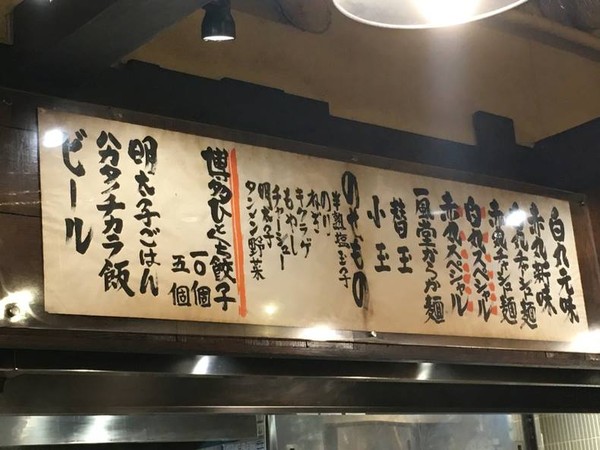 白丸元味
赤丸新味
白丸チャーシュー麺
赤丸チャーシュー麺
白丸スペシャル
赤丸スペシャル
一風堂からか麺
替玉
小玉
のせもの
半熟塩玉子
のり
ねぎ
キクラゲ
もやし
チャーシュー
明太子
タンメン野菜
博多ひとくち餃子
一〇個
五個
明太子ごはん
ハカタノチカラ飯
ビール